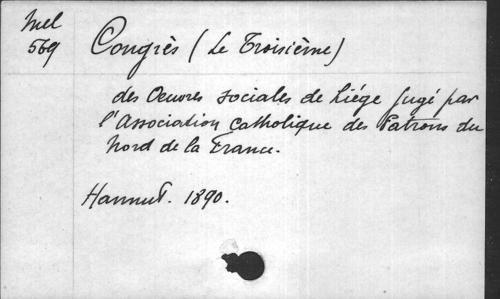 Mel
569
Congrès (Le Troisième)
des Oeuvres sociales de Liége jugé par
l'Association Catholique des Patrons du
Nord de la France.
Hannut. 1890.